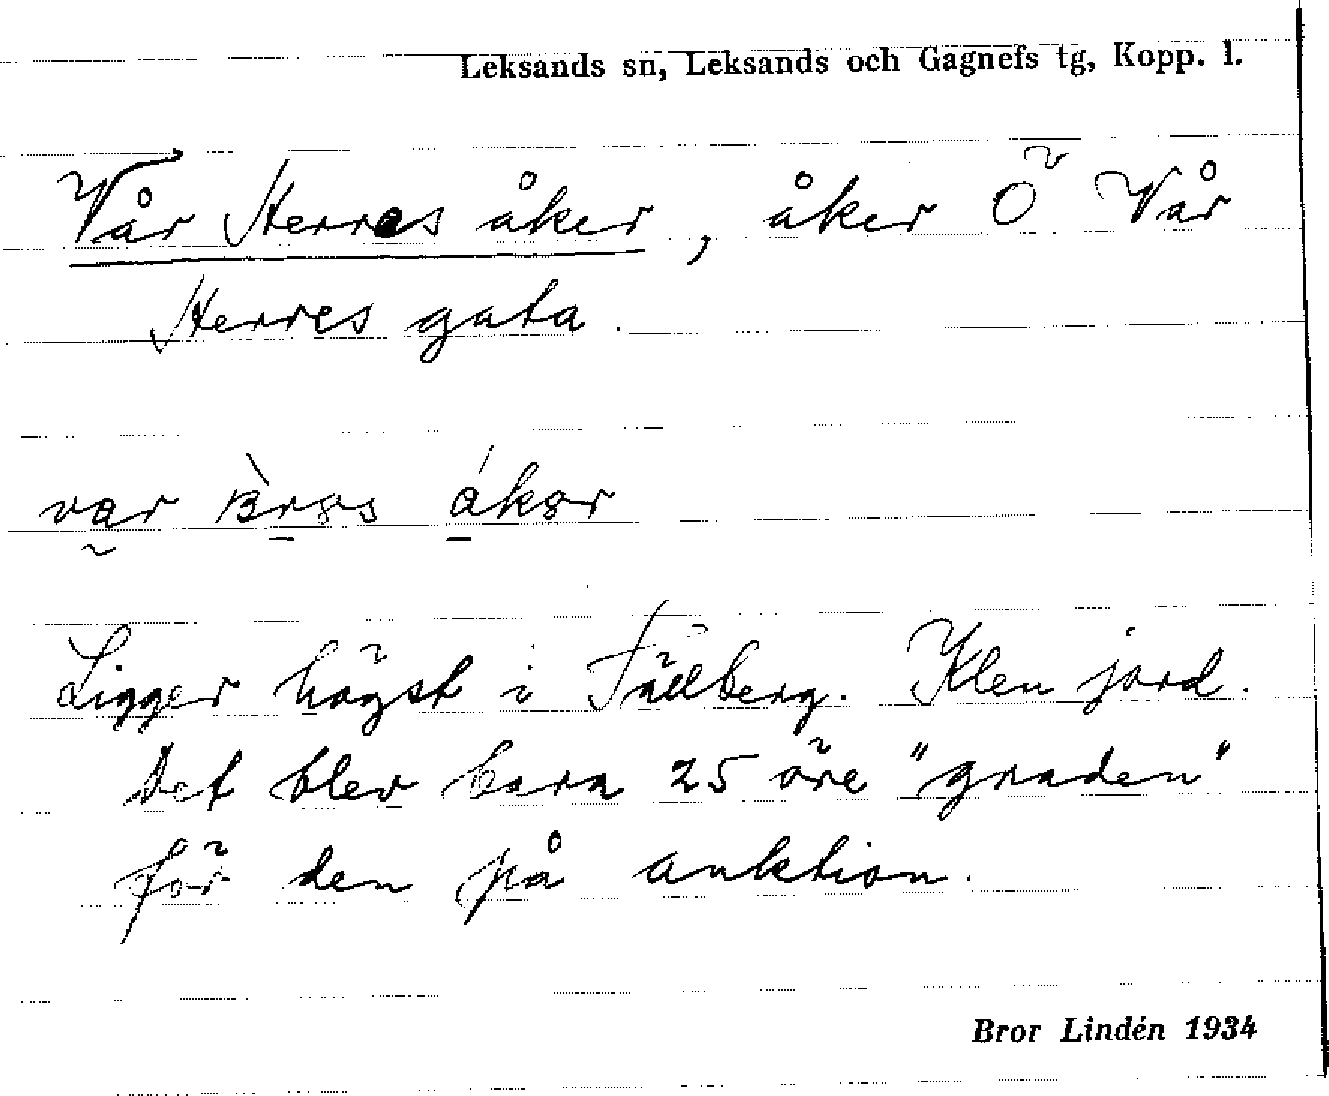 Leksands sn, Leksands och Gagnefs tg, Kopp. l.
Vår Herres åker, åker Ö Vår
Herres gata.
Ligger högst i Tällberg. Klen jord.
Det blev bara 25 öre "graden"
för den på auktion.
Bror Lindén 1934